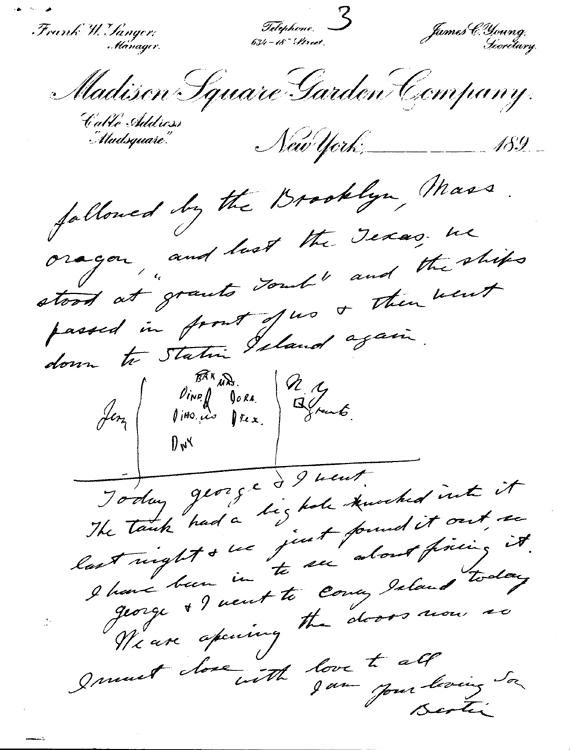 3
Frank W. Sanger,
Manager.
Telephone.
634-18th Street.
James C. Young,
Secretary.
Madison Square Garden Company.
Cable Address
"Madsquare."
New York, 189
followed by the Brooklyn, Mass.
oragon, and last the Texas, we
stood at "grants Tomb" and the ships
passed in front of us & then went
down to Statin Island again.
Jery
BRK MAS.
IND. ORA.
us TEX.
NY
N.Y
grants.
Today george & I went
The tank had a big hole knocked into it
last night & we just found it out, so
I have been in to see about fixing it.
george & I went to Coney Island today
We are opening the doors now so
I must close with love to all
I am your loving Son
Bertie